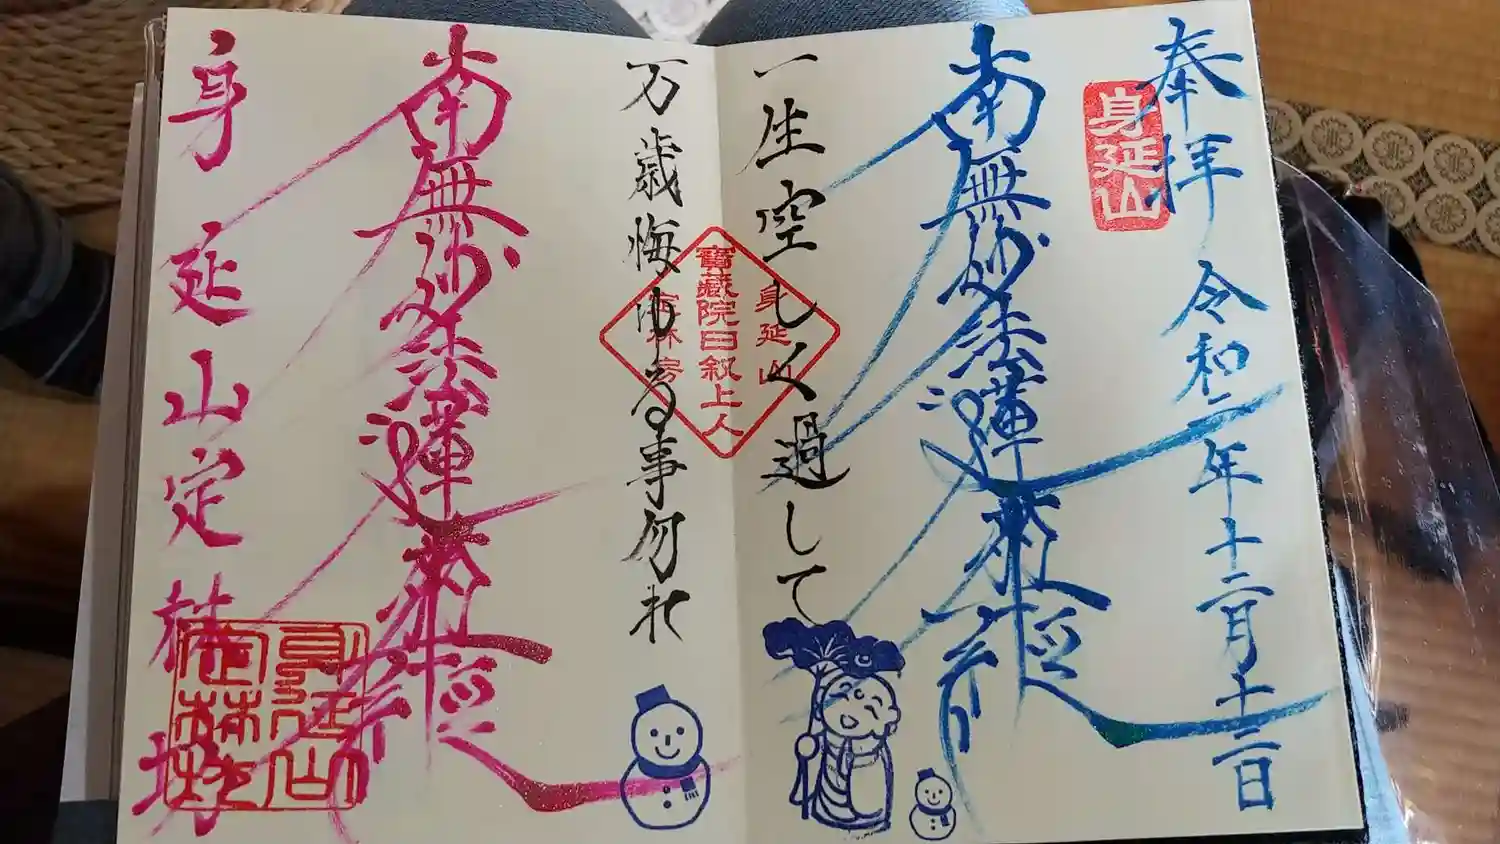 奉拝 令和二年十二月十二日
身延山
南無妙法蓮華経
一生空しく過して
身延山
寶蔵院日叙上人
定林房
万歳悔ゆる事勿れ
南無妙法蓮華経
身延山定林坊
身延山
定林坊